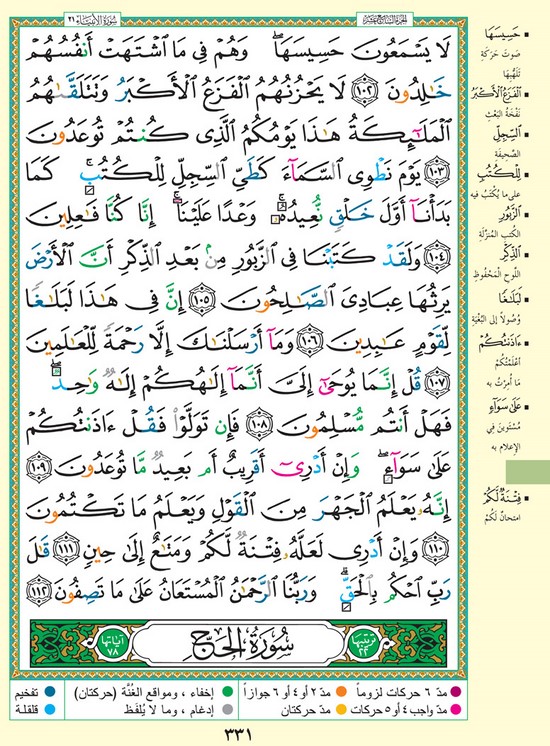 سُورَةُ الأَنبِيَاء ٢١
الجزء السابع عشر
لَا يَسْمَعُونَ حَسِيسَهَا ۖ وَهُمْ فِى مَا ٱشْتَهَتْ أَنفُسُهُمْ
خَـٰلِدُونَ ١٠٢ لَا يَحْزُنُهُمُ ٱلْفَزَعُ ٱلْأَكْبَرُ وَتَتَلَقَّىٰهُمُ
ٱلْمَلَـٰٓئِكَةُ هَـٰذَا يَوْمُكُمُ ٱلَّذِى كُنتُمْ تُوعَدُونَ
١٠٣ يَوْمَ نَطْوِى ٱلسَّمَآءَ كَطَىِّ ٱلسِّجِلِّ لِلْكُتُبِ ۚ كَمَا
بَدَأْنَآ أَوَّلَ خَلْقٍ نُّعِيدُهُۥ ۚ وَعْدًا عَلَيْنَآ ۚ إِنَّا كُنَّا فَـٰعِلِينَ
١٠٤ وَلَقَدْ كَتَبْنَا فِى ٱلزَّبُورِ مِنۢ بَعْدِ ٱلذِّكْرِ أَنَّ ٱلْأَرْضَ
يَرِثُهَا عِبَادِىَ ٱلصَّـٰلِحُونَ ١٠٥ إِنَّ فِى هَـٰذَا لَبَلَـٰغًا
لِّقَوْمٍ عَـٰبِدِينَ ١٠٦ وَمَآ أَرْسَلْنَـٰكَ إِلَّا رَحْمَةً لِّلْعَـٰلَمِينَ
١٠٧ قُلْ إِنَّمَا يُوحَىٰٓ إِلَىَّ أَنَّمَآ إِلَـٰهُكُمْ إِلَـٰهٌ وَٰحِدٌ ۖ
فَهَلْ أَنتُم مُّسْلِمُونَ ١٠٨ فَإِن تَوَلَّوْا۟ فَقُلْ ءَاذَنتُكُمْ
عَلَىٰ سَوَآءٍ ۖ وَإِنْ أَدْرِىٓ أَقَرِيبٌ أَم بَعِيدٌ مَّا تُوعَدُونَ ١٠٩
إِنَّهُۥ يَعْلَمُ ٱلْجَهْرَ مِنَ ٱلْقَوْلِ وَيَعْلَمُ مَا تَكْتُمُونَ
١١٠ وَإِنْ أَدْرِى لَعَلَّهُۥ فِتْنَةٌ لَّكُمْ وَمَتَـٰعٌ إِلَىٰ حِينٍ ١١١ قَـٰلَ
رَبِّ ٱحْكُم بِٱلْحَقِّ ۗ وَرَبُّنَا ٱلرَّحْمَـٰنُ ٱلْمُسْتَعَانُ عَلَىٰ مَا تَصِفُونَ ١١٢
ترتيبها ٢٢
سُورَةُ الحَجِّ
آياتها ٧٨
حَسِيسَهَا
صوتَ حَرَكَةِ
تَلَهُّبِهَا
ٱلْفَزَعُ ٱلْأَكْبَرُ
نَفْخَةُ البَعْثِ
ٱلسِّجِلِّ
الصَّحِيفَةِ
لِلْكُتُبِ
على ما يُكْتَبُ فيه
ٱلزَّبُورِ
الكتب المنزّلة
ٱلذِّكْرِ
اللوح المحفوظ
لَبَلَـٰغًا
وُصُولاً إلى البُغْيَةِ
ءَاذَنتُكُمْ
أعْلَمْتُكُم
مَا أُمِرْتُ به
عَلَىٰ سَوَآءٍ
مُسْتَوِينَ في
الإعلام به
فِتْنَةٌ لَّكُمْ
امتحانٌ لَكُمْ
مدّ ٦ حركات لزوماً
مدّ ٢ أو ٤ أو ٦ جوازاً
إخفاء ، ومواقع الغُنَّة (حركتان)
تفخيم
مدّ واجب ٤ أو ٥ حركات
مدّ حركتان
إدغام ، وما لا يُلفَظ
قلقلة
٣٣١